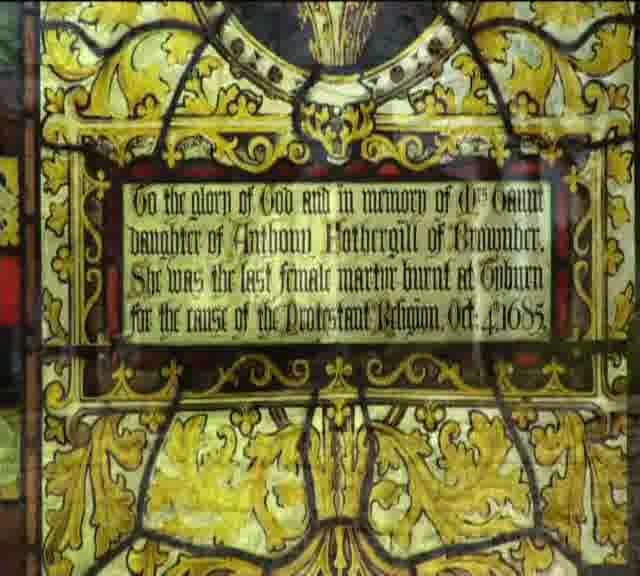 To the glory of God and in memory of Mrs Gaunt
daughter of Anthony Fothergill of Brownber.
She was the last female martyr burnt at Tyburn
for the cause of the Protestant Religion. Oct. 4th 1685.